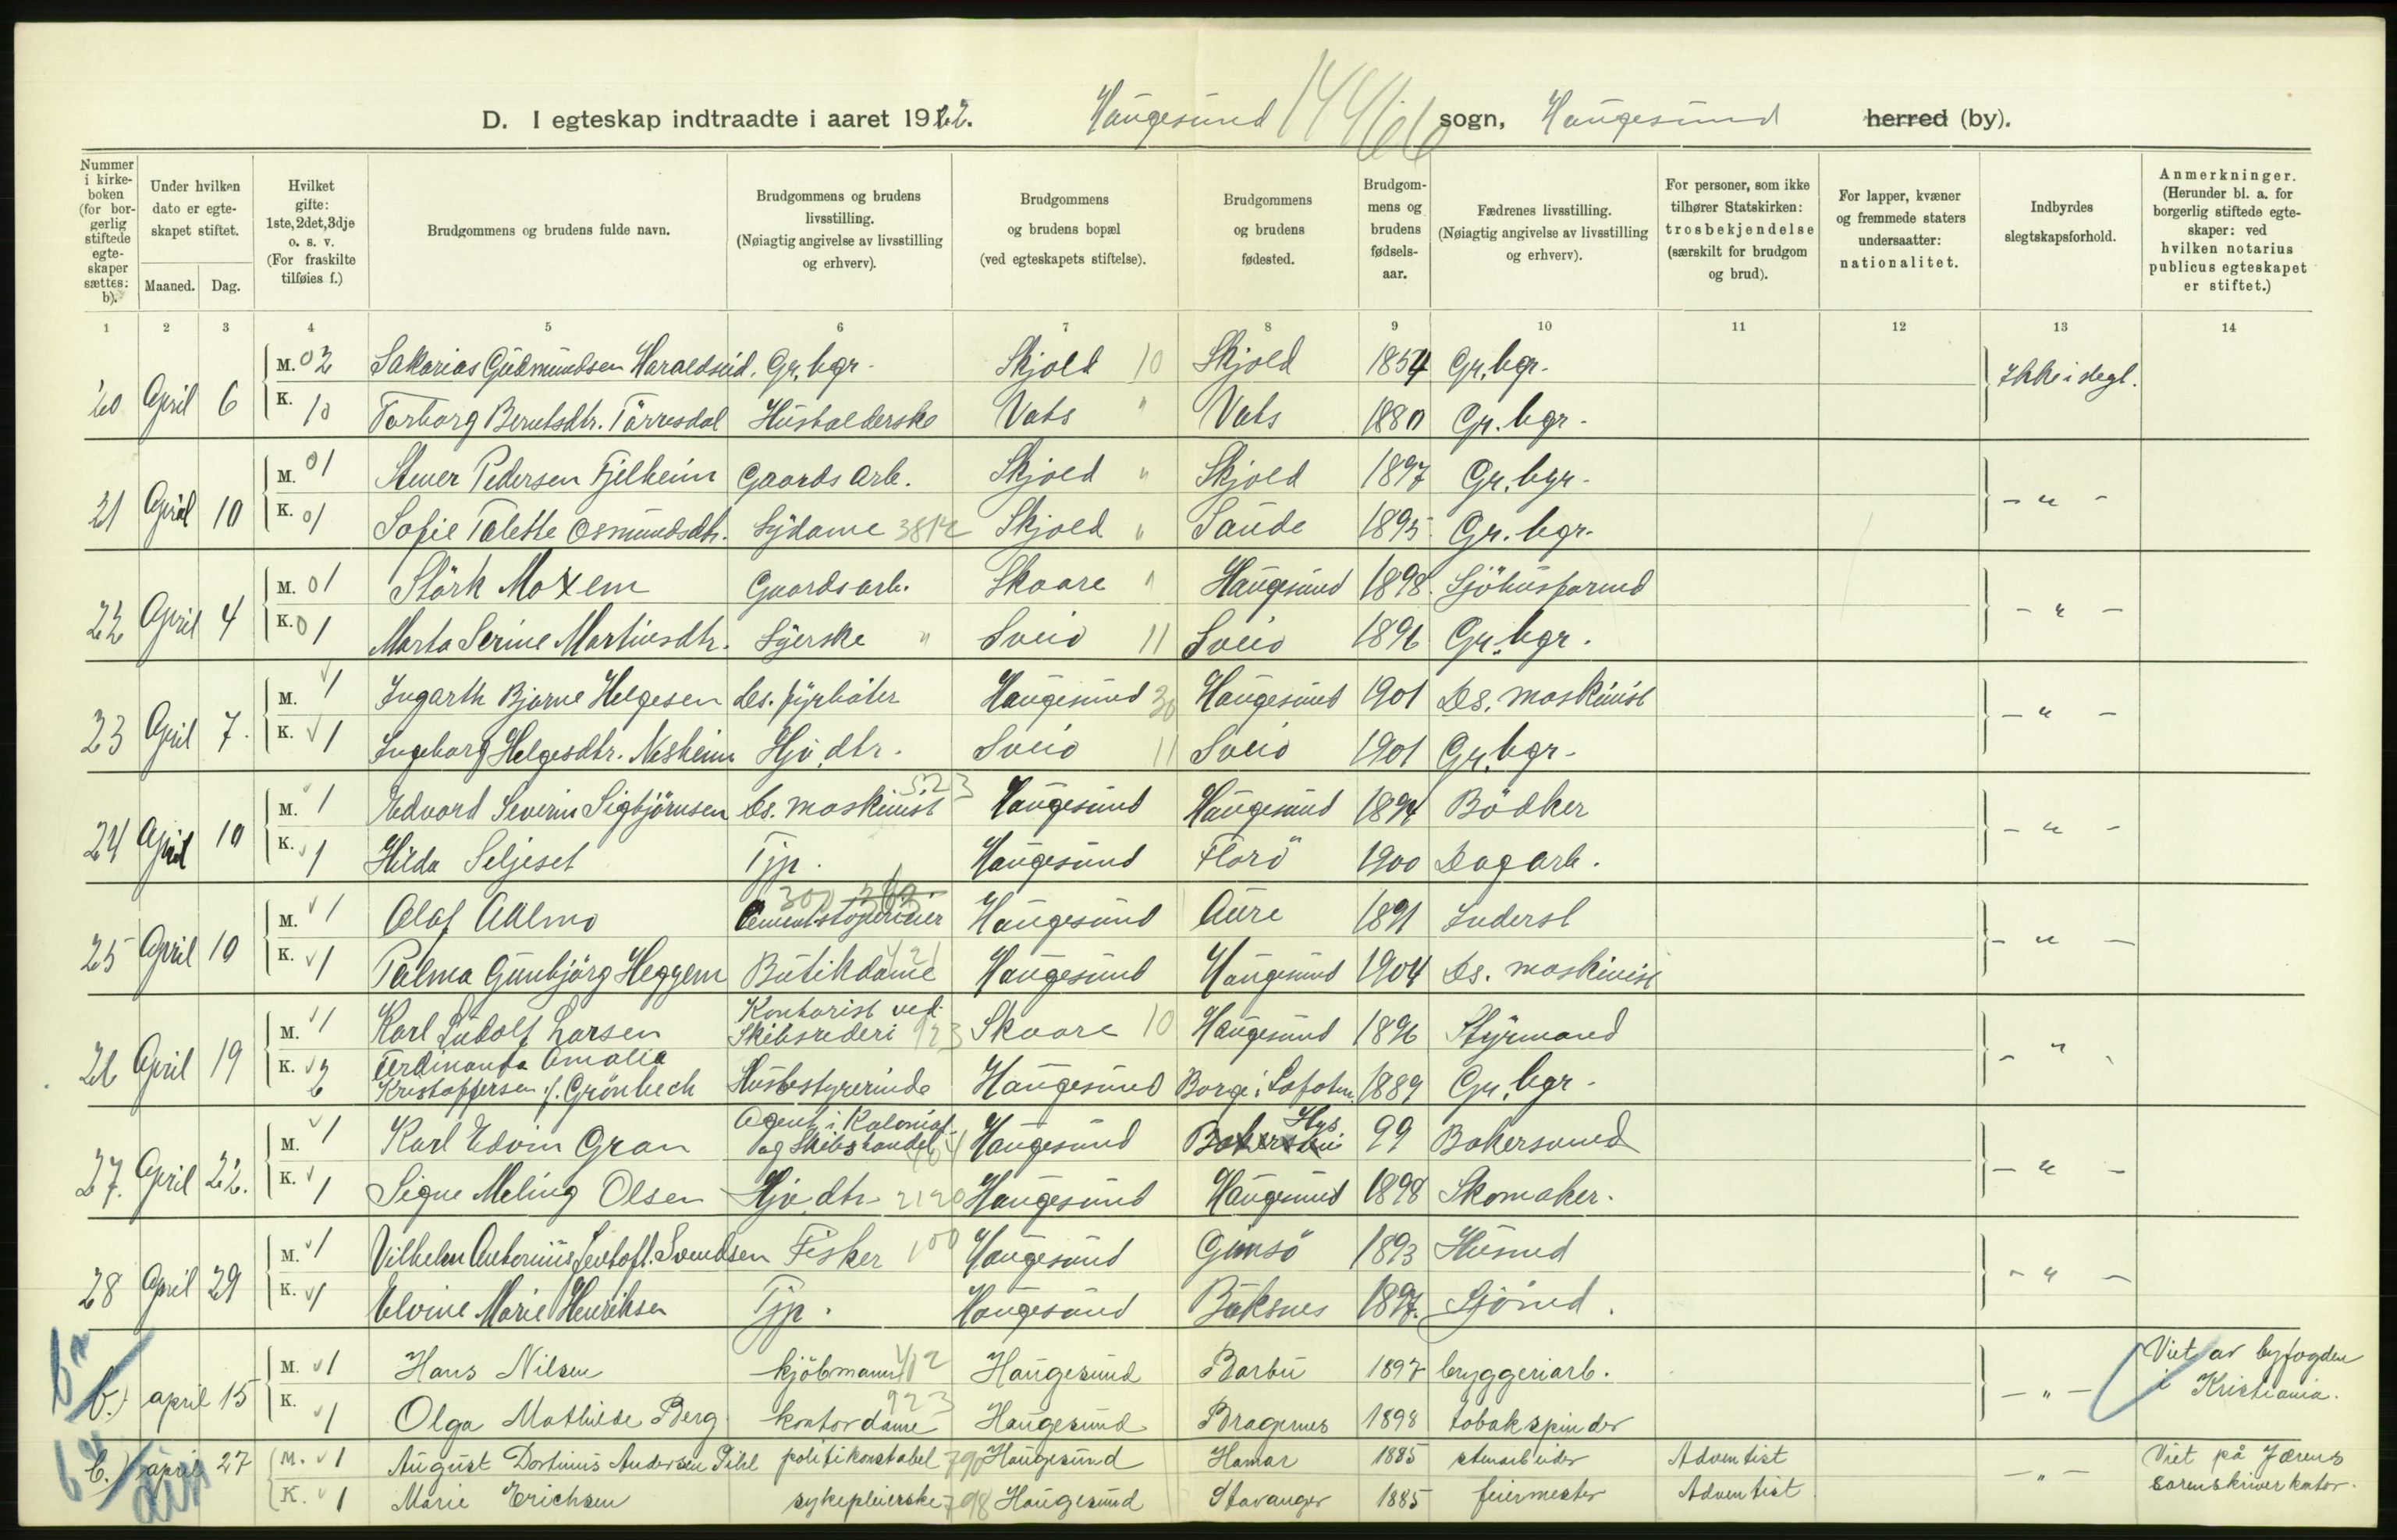 D. I egteskap indtraadte i aaret 1922. Haugesund sogn, Haugesund herred (by).
Nummer i kirkeboken (for borgerlig stiftede egteskaper sættes: b).
Under hvilken dato er egteskapet stiftet.
Maaned. Dag.
Hvilket gifte: 1ste, 2det, 3dje o. s. v. (For fraskilte tilføies f.)
Brudgommens og brudens fulde navn.
Brudgommens og brudens livsstilling. (Nøiagtig angivelse av livsstilling og erhverv).
Brudgommens og brudens bopæl (ved egteskapets stiftelse).
Brudgommens og brudens fødested.
Brudgommens og brudens fødselsaar.
Fædrenes livsstilling. (Nøiagtig angivelse av livsstilling og erhverv).
For personer, som ikke tilhører Statskirken: trosbekjendelse (særskilt for brudgom og brud).
For lapper, kvæner og fremmede staters undersaatter: nationalitet.
Indbyrdes slegtskapsforhold.
Anmerkninger. (Herunder bl. a. for borgerlig stiftede egteskaper: ved hvilken notarius publicus egteskapet er stiftet.)
1 2 3 4 5 6 7 8 9 10 11 12 13 14
20 April 6 M. 02 Sakarias Gudmundsen Haraldseid. Gr. bgr. Skjold 10 Skjold 1854 Gr. bgr. Ikke i slegt.
K. 10 Torborg Berntsdtr. Törresdal Husholderske Vats " Vats 1880 Gr. bgr.
21 April 10 M. 01 Stener Pedersen Fjelheim Gaards arb. Skjold " Skjold 1897 Gr. bgr. - " -
K. 01 Sofie Talette Osmundsdtr. Sydame 3812 Skjold " Saude 1895 Gr. bgr.
22 April 4 M. 01 Störk Moxem Gaardsarb. Skaare " Haugesund 1898 Sjöhusformd - " -
K. 01 Marta Serine Martinsdtr. Syerske " Sveio 11 Sveio 1896 Gr. bgr.
23 April 7. M. 1 Ingarth Bjarne Helgesen Ds. fyrböter Haugesund 30 Haugesund 1901 Ds. maskinist - " -
K. 1 Ingeborg Helgesdtr. Nesheim Hjv. dtr. Sveio 11 Sveio 1901 Gr. bgr.
24 April 10 M. 1 Edvard Severin Sigbjörnsen Ds. maskinist 523 Haugesund Haugesund 1894 Bödker - " -
K. 1 Hilda Seljeset Tjp. Haugesund Florö 1900 Dagarb.
25 April 10 M. 1 Olaf Aalmo 300 Haugesund Aure 1891 Inderst - " -
K. 1 Palma Gunbjörg Heggem Butikdame 421 Haugesund Haugesund 1904 Ds. maskinist
26 April 19 M. 1 Karl Ludolf Larsen Kontorist ved Skibsrederi 923 Skaare 10 Haugesund 1896 Styrmand - " -
K. 2 Ferdinanda Amalia Kristoffersen f. Grönbech Husbestyrerinde Haugesund Borge i Lofoten. 1889 Gr. bgr.
27. April 22. M. 1 Karl Edvin Gran Agent i Kolonial og Skibshandel 404 Haugesund Hgs 99 Bakersvend - " -
K. 1 Signe Meling Olsen Hjv. dtr. 2120 Haugesund Haugesund 1898 Skomaker.
28 April 29 M. 1 Vilhelm Antonius Svendsen Fisker 100 Haugesund Gimsö 1893 Husmd - " -
K. 1 Elvine Marie Henriksen Tjp. Haugesund Buksnes 1897. Sjömd.
b.) april 15 M. 1 Hans Nilsen kjöbmann 402 Haugesund Barbu 1897 bryggeriarb. - " - Viet av byfogden i Kristiania.
K. 1 Olga Mathilde Berg kontordame 923 Haugesund Bragernes 1898 tobakspinder
b.) april 27 M. 1 August Dortinius Andersen Pihl politikonstabel 790 Haugesund Hamar 1885 stenarbeider Adventist - " - Viet på Jærens sorenskriverkontor.
K. 1 Marie Erichsen sykepleierske 798 Haugesund Stavanger 1885 feiermester Adventist